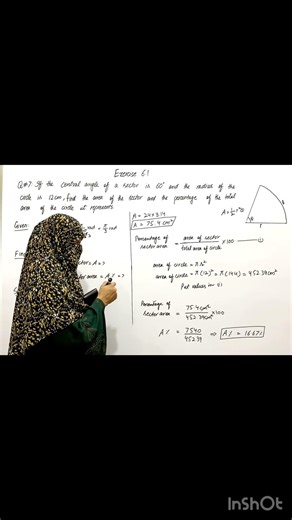 Exercise 6.1
Q#7: If the central angle of a sector is 60° and the radius of the
circle is 12cm, find the area of the sector and the percentage of the total
area of the circle it represents.
Given:
rad = π/3 rad
Find
sector's A = ?
sector area = A% = ?
A = 24×3.14
A = 75.4 cm²
Percentage of sector area = area of sector / total area of circle × 100 — (1)
area of circle = πr²
area of circle = π(12)² = π(144) = 452.39cm²
Put values in (1)
Percentage of sector area = 75.4cm² / 452.39cm² × 100
A% = 7540 / 452.39 ⇒ A% = 16.67%
A = 1/2 r²θ
InShOt